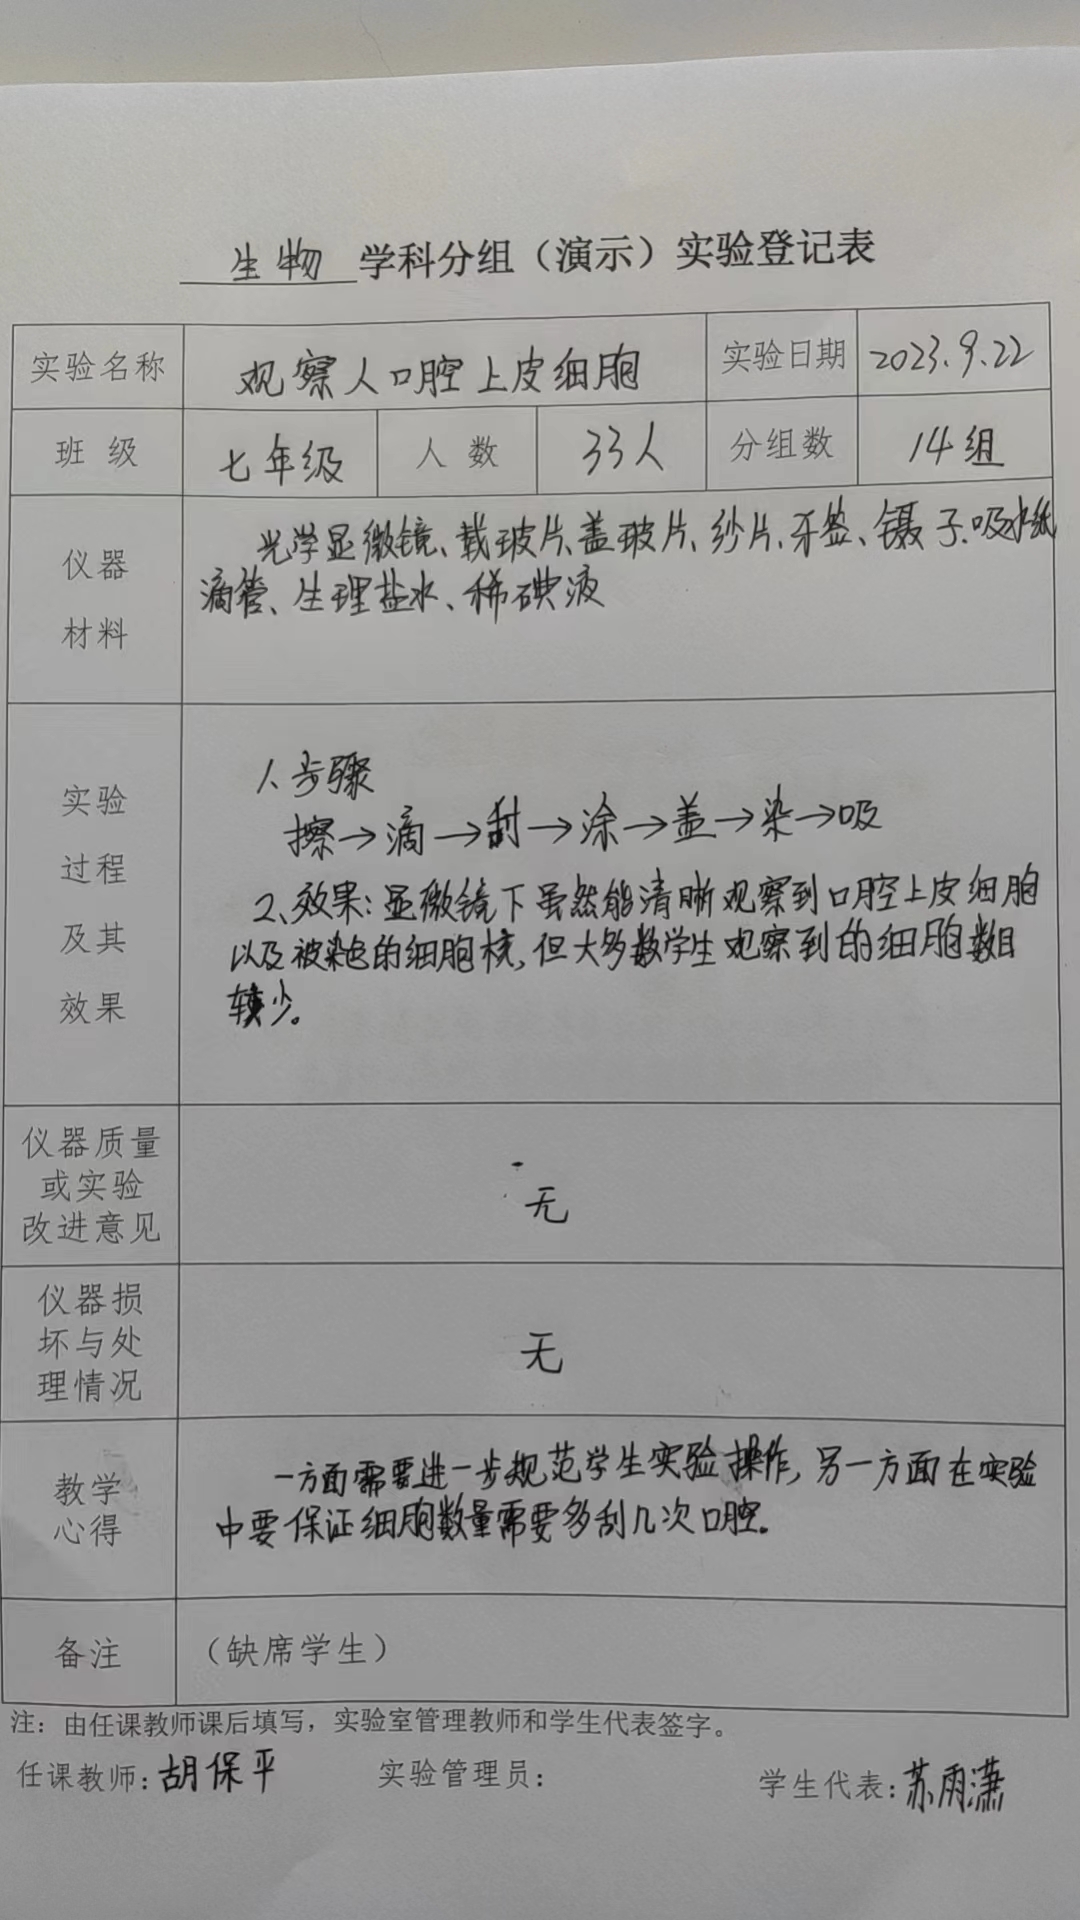 生物 学科分组（演示）实验登记表
实验名称 观察人口腔上皮细胞 实验日期 2023.9.22
班 级 七年级 人 数 33人 分组数 14组
仪器
材料
光学显微镜、载玻片、盖玻片、纱片、牙签、镊子、吸水纸
滴管、生理盐水、稀碘液
实验
过程
及其
效果
1、步骤
擦→滴→刮→涂→盖→染→吸
2、效果：显微镜下虽然能清晰观察到口腔上皮细胞
以及被染色的细胞核，但大多数学生观察到的细胞数目
较少。
仪器质量
或实验
改进意见
无
仪器损
坏与处
理情况
无
教学
心得
一方面需要进一步规范学生实验操作，另一方面在实验
中要保证细胞数量需要多刮几次口腔。
备注 （缺席学生）
注：由任课教师课后填写，实验室管理教师和学生代表签字。
任课教师：胡保平 实验管理员： 学生代表：苏雨潇